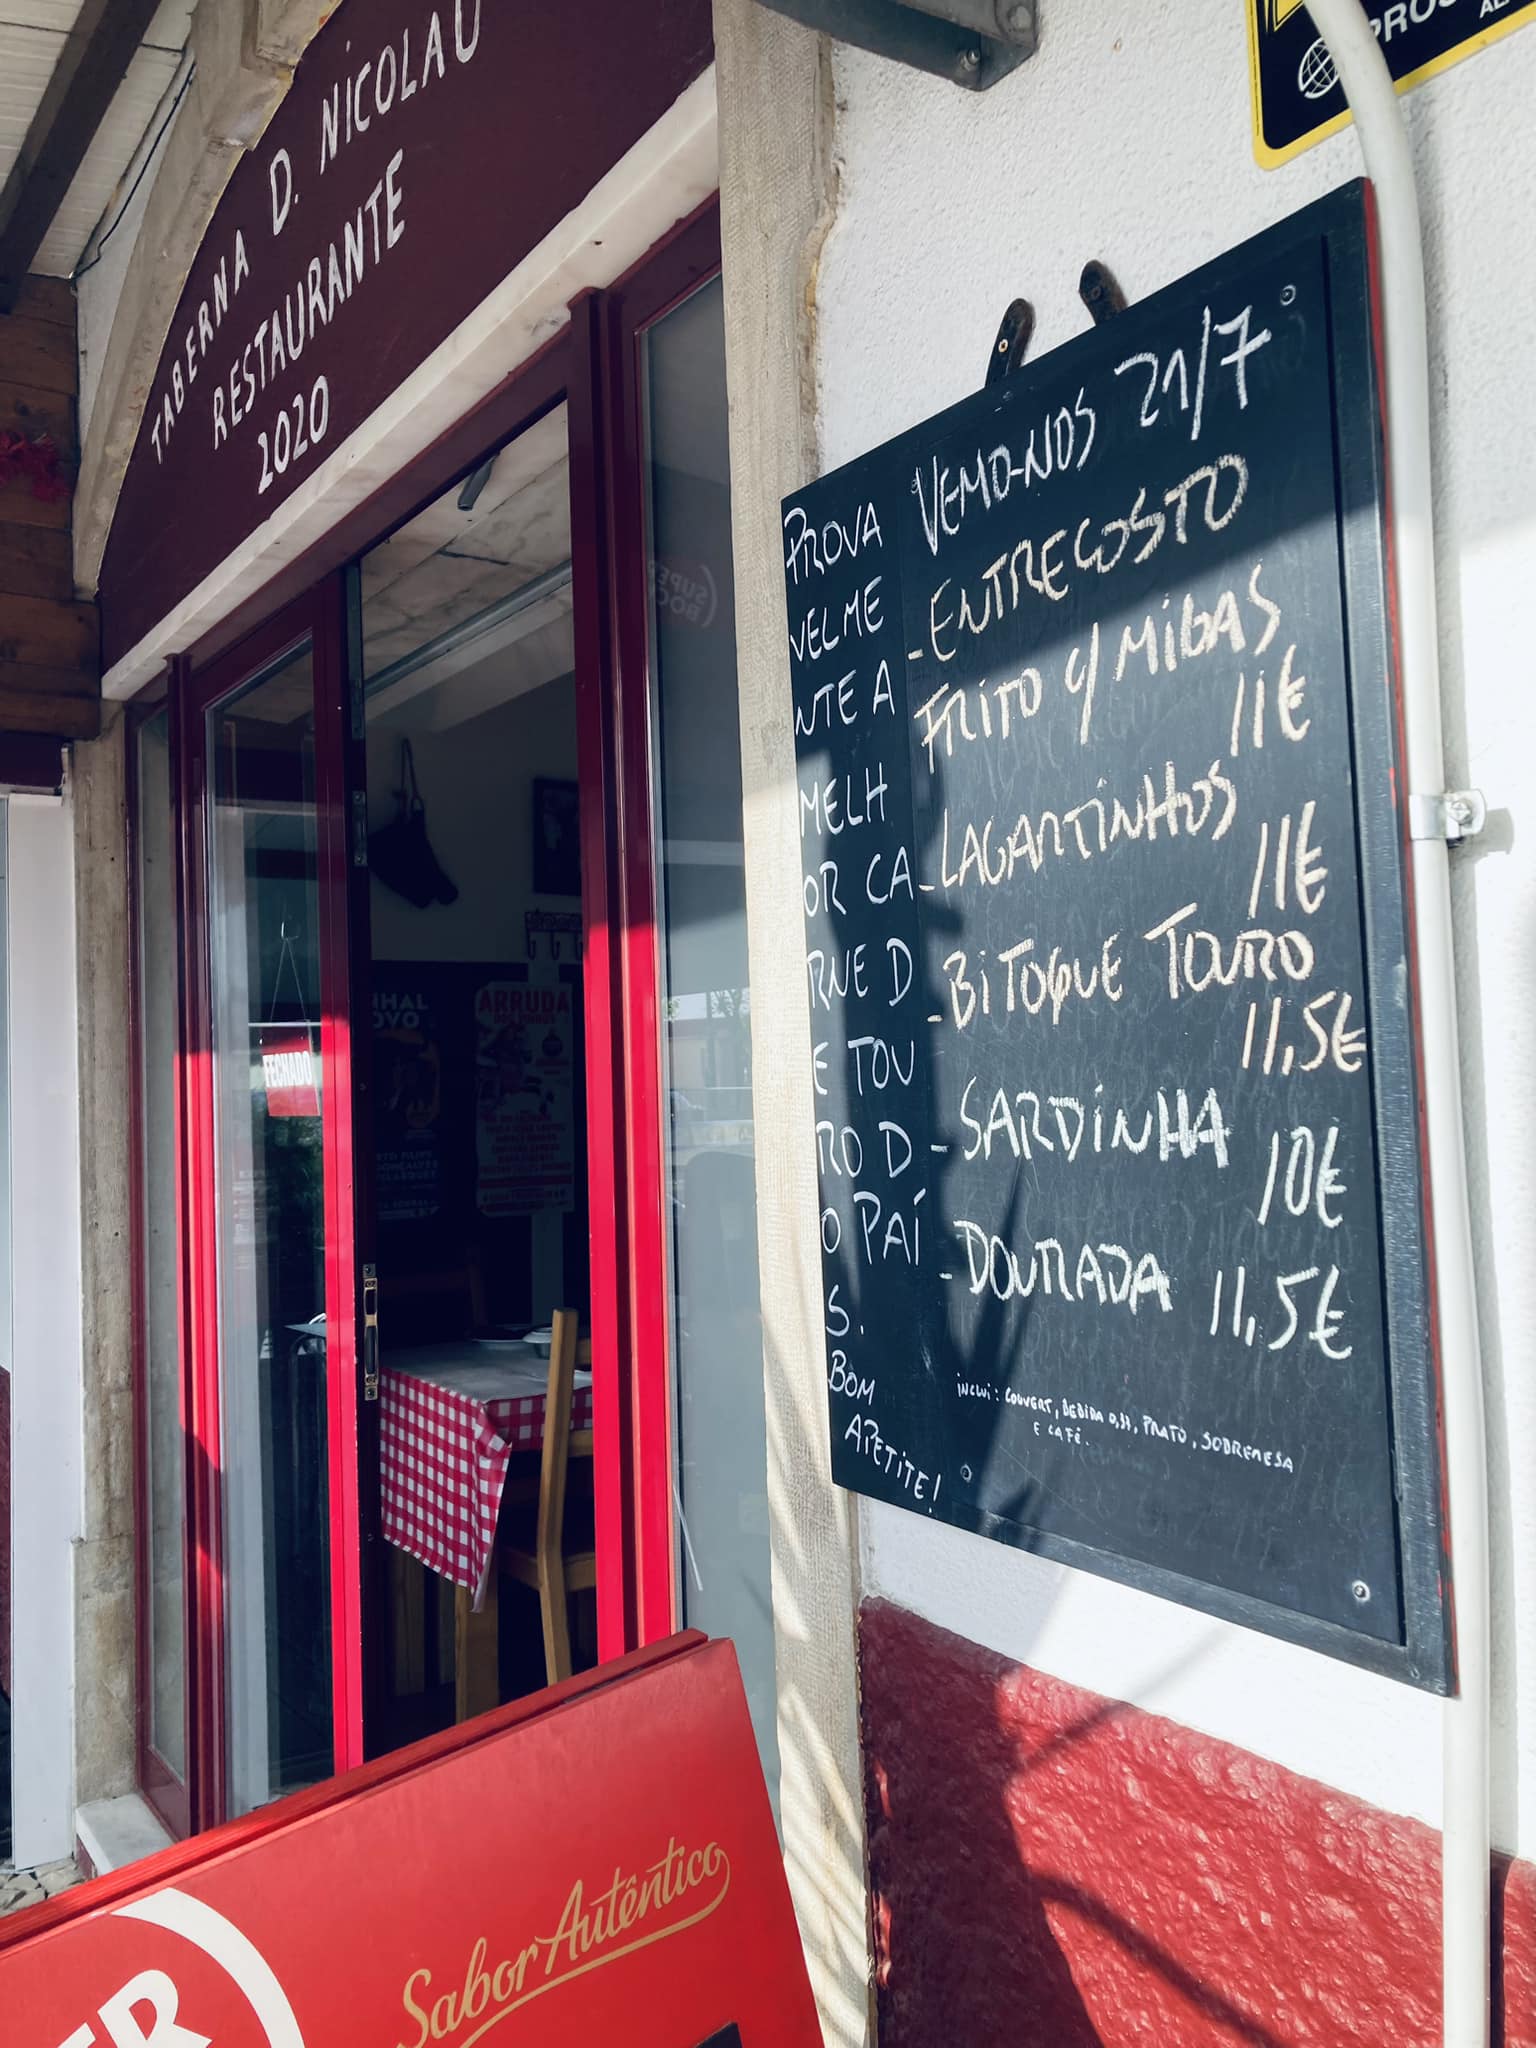 TABERNA D. NICOLAU
RESTAURANTE
2020
PROVA
VELME
NTE A
MELH
OR CA
RNE D
E TOU
RO D
O PAÍ
S.
BOM
APETITE!
VEMO-NOS 21/7
-ENTRECOSTO
FRITO C/ MIGAS
11€
-LAGARTINHOS
11€
-BITOQUE TOURO
11,5€
-SARDINHA
10€
-DOURADA 11,5€
INCLUI: COUVERT, BEBIDA 0,33, PRATO, SOBREMESA
E CAFÉ.
FECHADO
ARRUDA
NHAL
OVO
SUPER
BOCK
Sabor Autêntico
ER
PROS